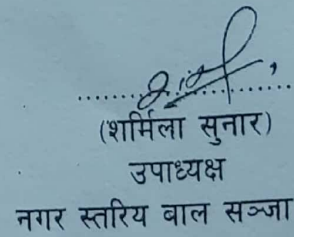 (शर्मिला सुनार)
उपाध्यक्ष
नगर स्तरिय बाल सञ्जा